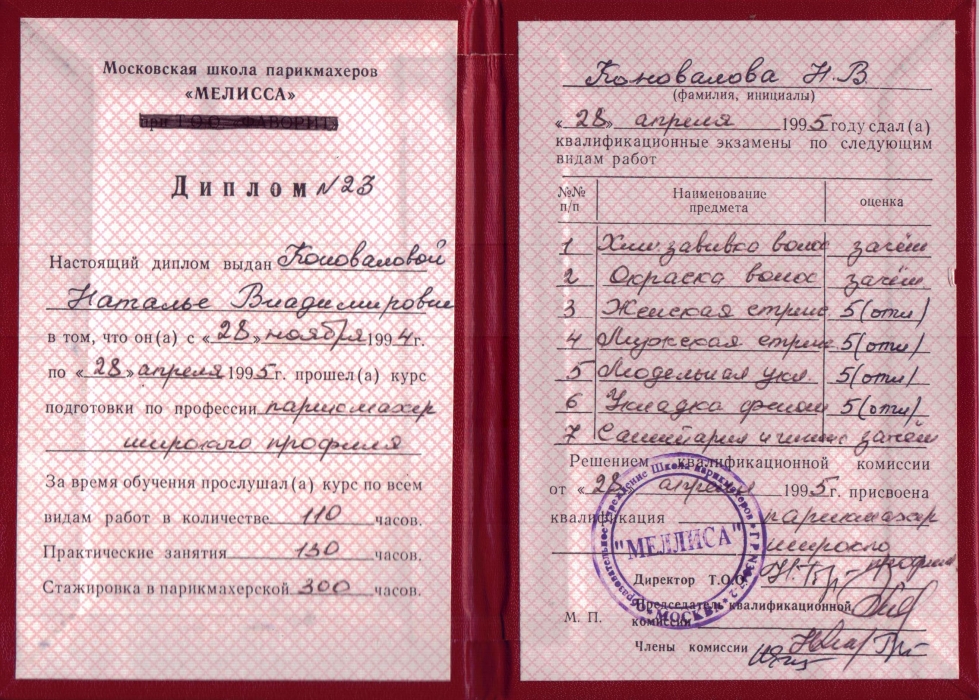 Московская школа парикмахеров
«МЕЛИССА»
при Т.О.О. ФАВОРИТ
Диплом №23
Настоящий диплом выдан Коноваловой
Наталье Владимировне
в том, что он(а) с «28» ноября 1994г.
по «28» апреля 1995г. прошел(а) курс
подготовки по профессии парикмахер
широкого профиля
За время обучения прослушал(а) курс по всем
видам работ в количестве 110 часов.
Практические занятия 130 часов.
Стажировка в парикмахерской 300 часов.
Коновалова Н.В.
(фамилия, инициалы)
«28» апреля 1995 году сдал(а)
квалификационные экзамены по следующим
видам работ
№№ п/п Наименование предмета оценка
1 Хим завивка волос зачёт
2 Окраска волос зачёт
3 Женская стриж 5(отл)
4 Мужская стриж 5(отл)
5 Модельная укл. 5(отл)
6 Укладка феном 5(отл)
7 Санитария и гигиена зачёт
Решением квалификационной комиссии
от «28» апреля 1995г. присвоена
квалификация парикмахер
широкого профиля
Директор Т.О.О.
Председатель квалификационной
М. П. комиссии
Члены комиссии
"МЕЛЛИСА"
Школа парикмахеров
МОСКВА